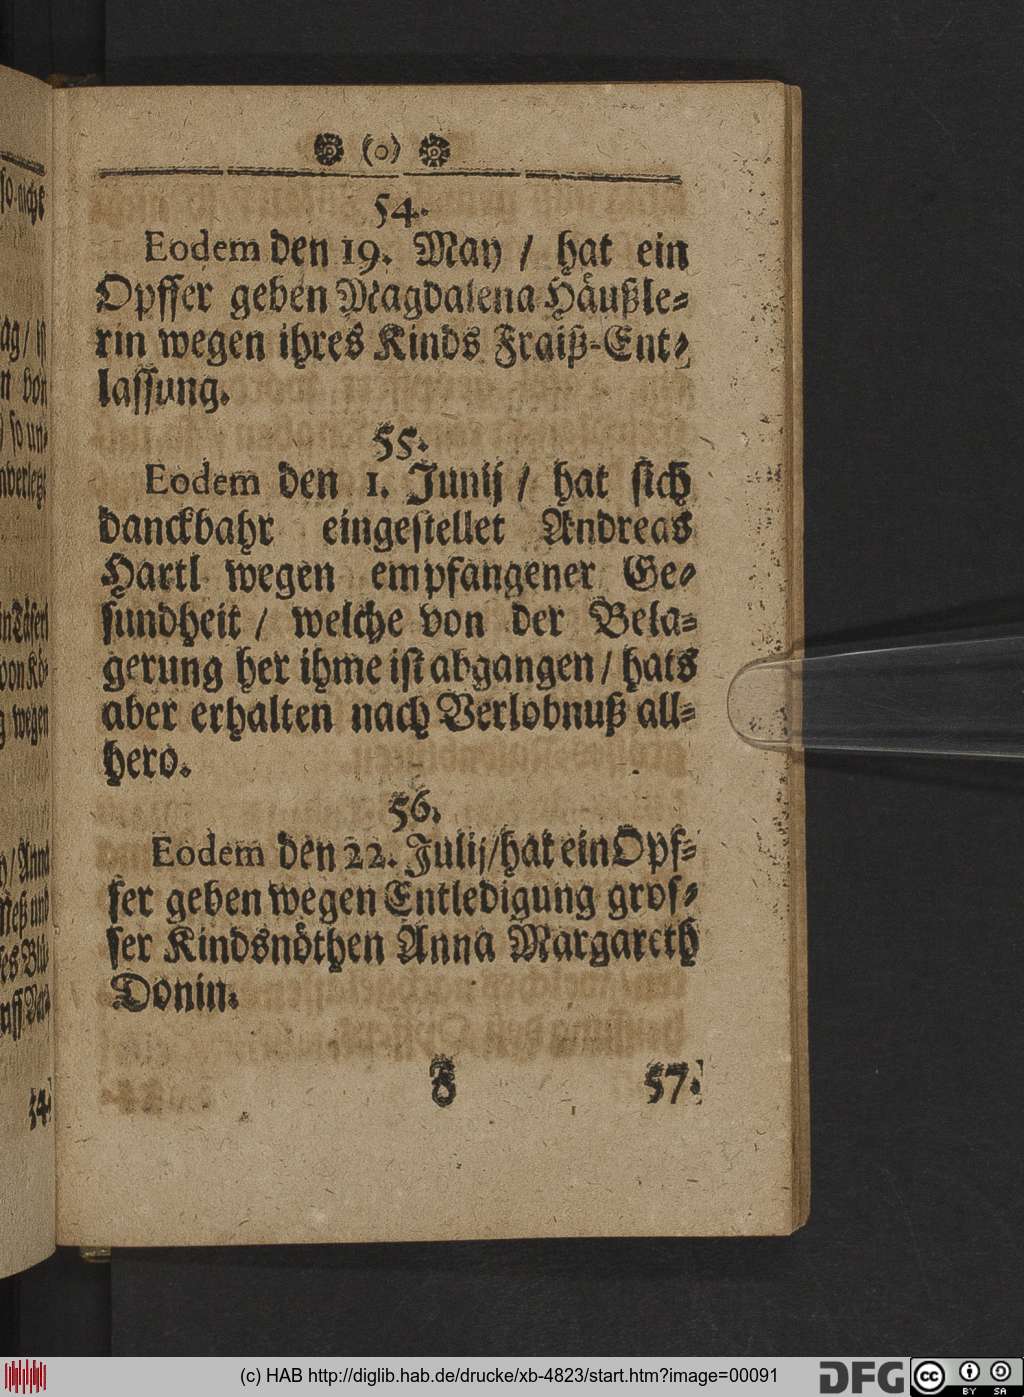 so nicht
ag / ist
n von
) so un-
nverletzt
von Kö-
g wegen
y / Anna
Meß und
es Blu-
54.
(o)
54.
Eodem den 19. May / hat ein
Opffer geben Magdalena Häußle-
rin wegen ihres Kinds Fraiß-Ent-
lassung.
55.
Eodem den 1. Junij / hat sich
danckbahr eingestellet Andreas
Hartl wegen empfangener Ge-
sundheit / welche von der Bela-
gerung her ihme ist abgangen / hats
aber erhalten nach Verlobnuß all-
hero.
56.
Eodem den 22. Julij / hat ein Opf-
fer geben wegen Entledigung gros-
ser Kindsnöthen Anna Margareth
Donin.
F
57.
(c) HAB http://diglib.hab.de/drucke/xb-4823/start.htm?image=00091
DFG
cc
BY SA